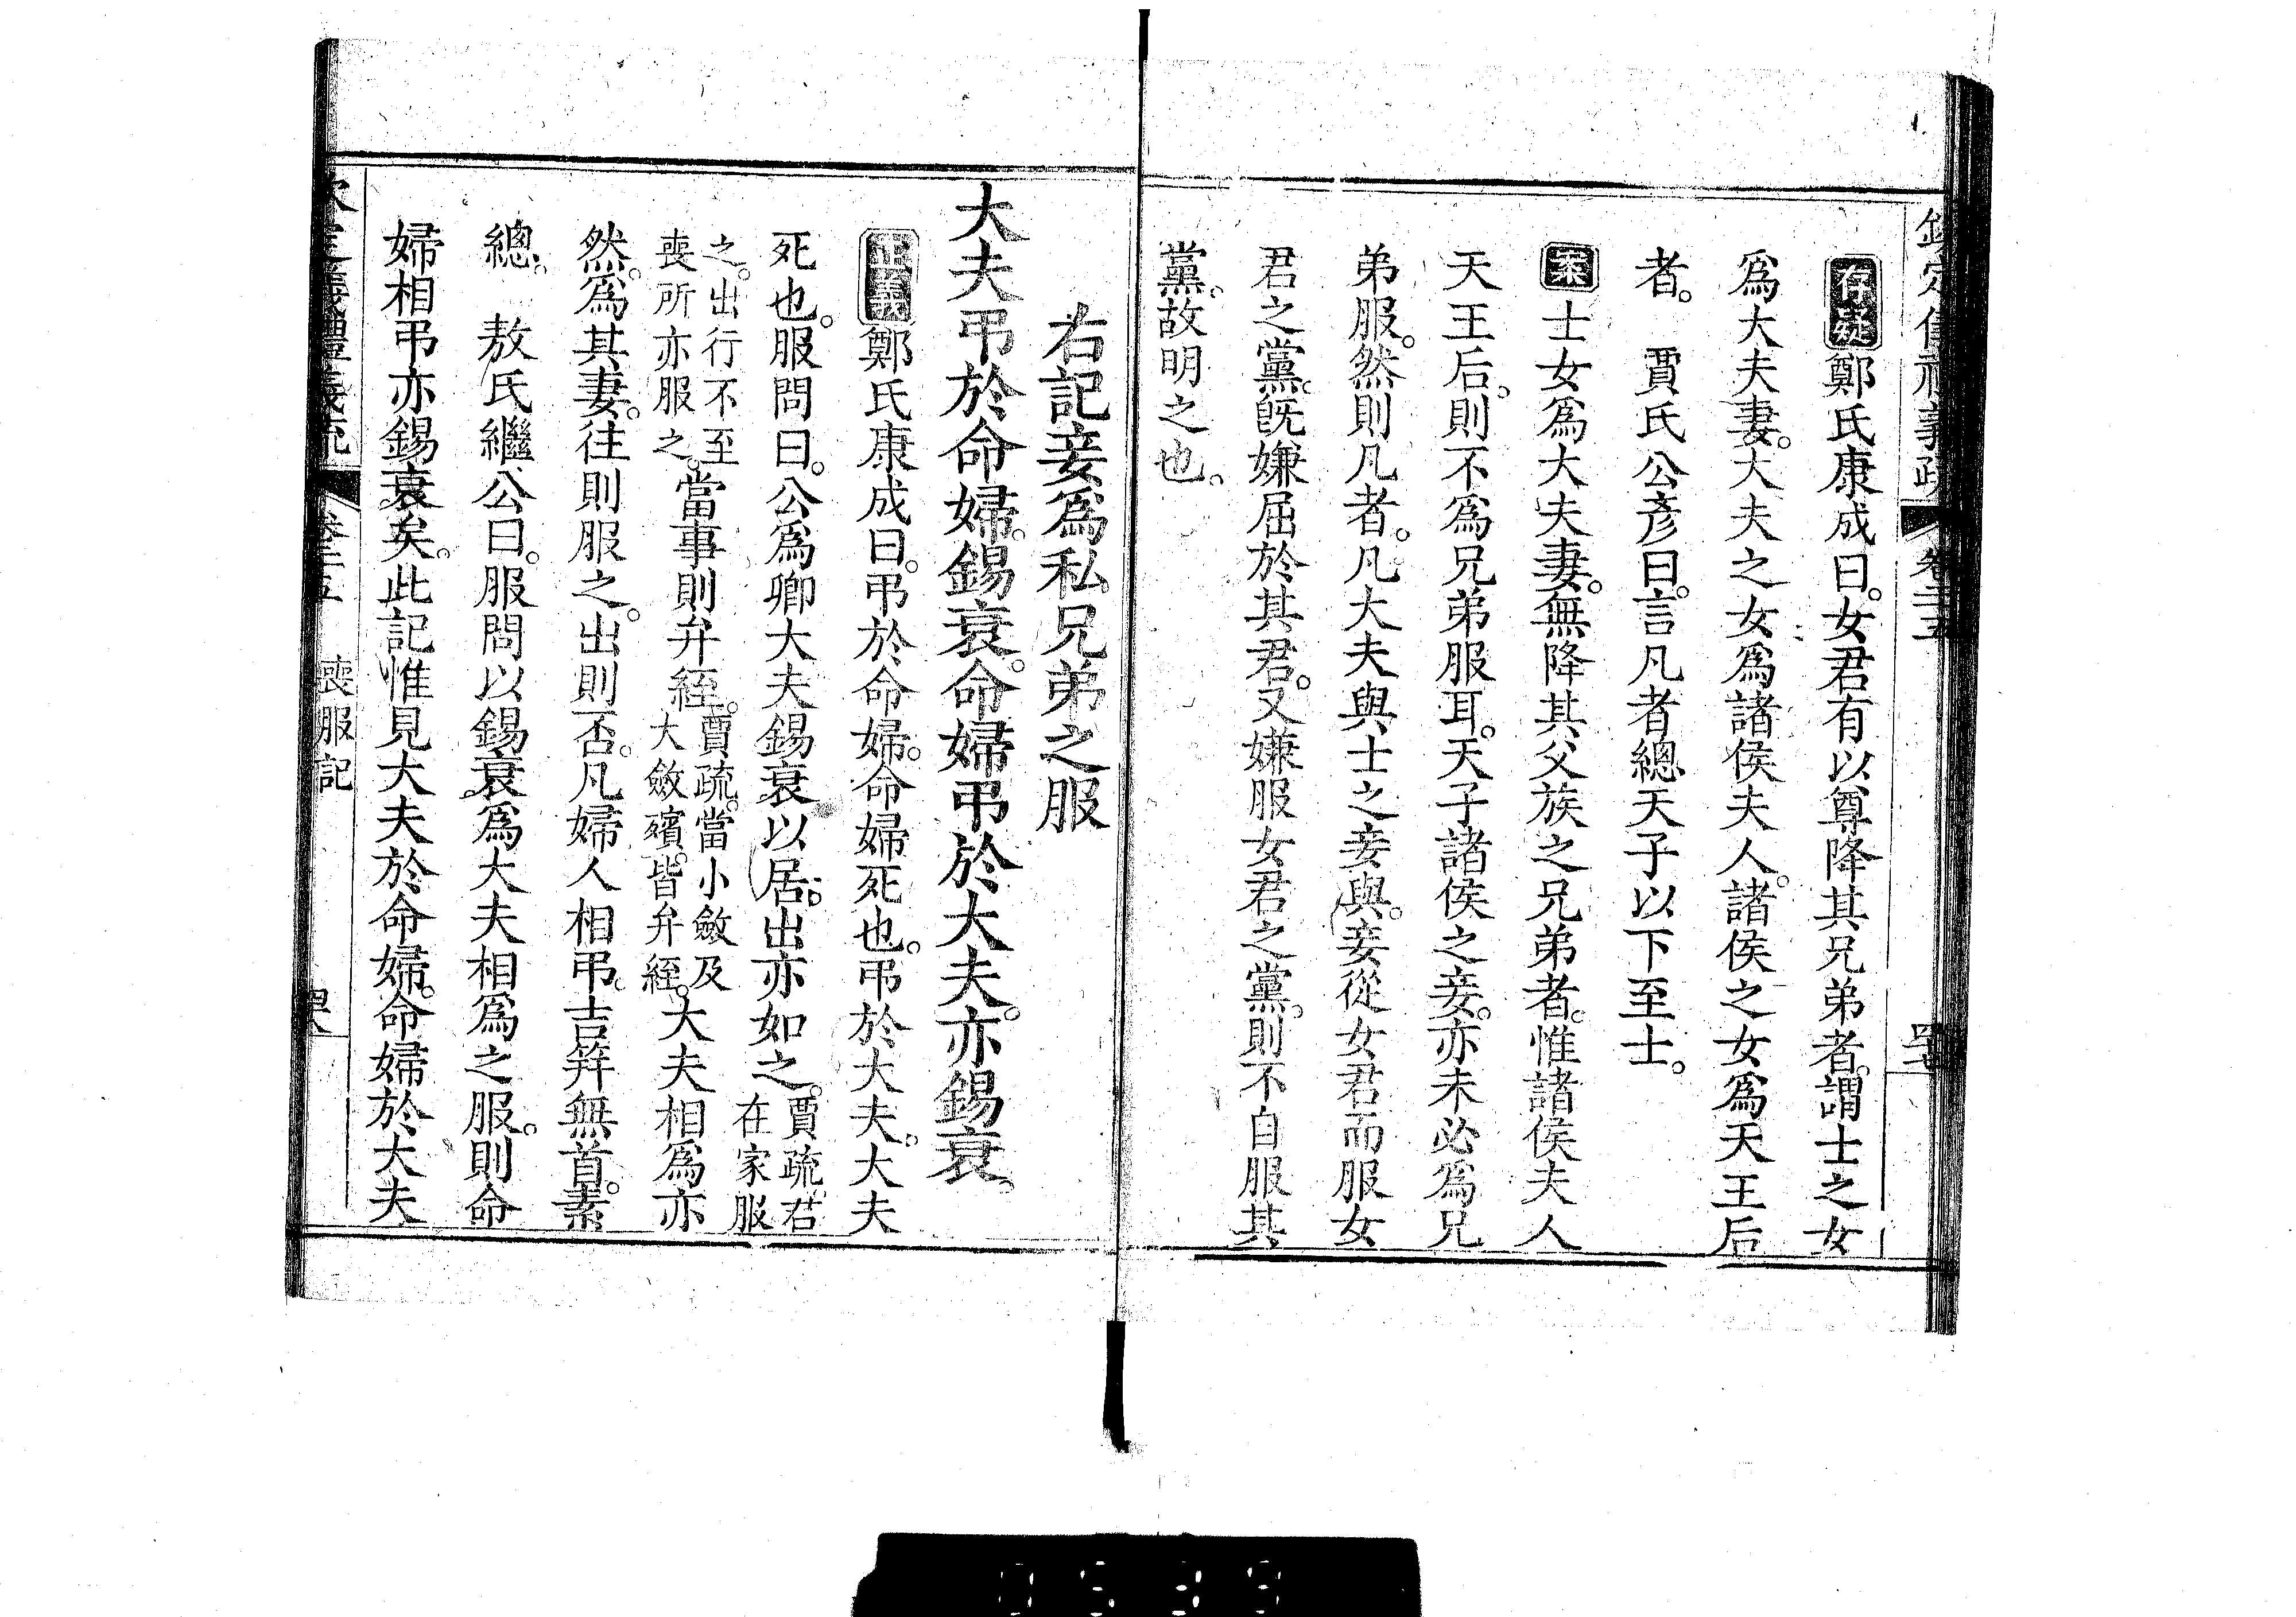 欽定儀禮義疏 卷二十五
存疑鄭氏康成曰。女君有以尊降其兄弟者。謂士之女
爲大夫妻。大夫之女爲諸侯夫人。諸侯之女爲天王后
者。 賈氏公彥曰。言凡者總天子以下至士。
案士女爲大夫妻。無降其父族之兄弟者。惟諸侯夫人
天王后。則不爲兄弟服耳。天子諸侯之妾。亦未必爲兄
弟服。然則凡者。凡大夫與士之妾與。妾從女君而服女
君之黨。旣嫌屈於其君。又嫌服女君之黨。則不自服其
黨。故明之也。
右記妾爲私兄弟之服
大夫弔於命婦。錫衰。命婦弔於大夫。亦錫衰。
正義鄭氏康成曰。弔於命婦。命婦死也。弔於大夫。大夫
死也。服問曰。公爲卿大夫錫衰以居。出亦如之。賈疏。君在家服
之。出行不至喪所亦服之。當事則弁絰。賈疏。當小斂及大斂殯。皆弁絰。大夫相爲亦
然。爲其妻。往則服之。出則否。凡婦人相弔。吉笄無首。素
總。 敖氏繼公曰。服問以錫衰爲大夫相爲之服。則命
婦相弔亦錫衰矣。此記惟見大夫於命婦。命婦於大夫
欽定儀禮義疏 卷二十五 喪服記